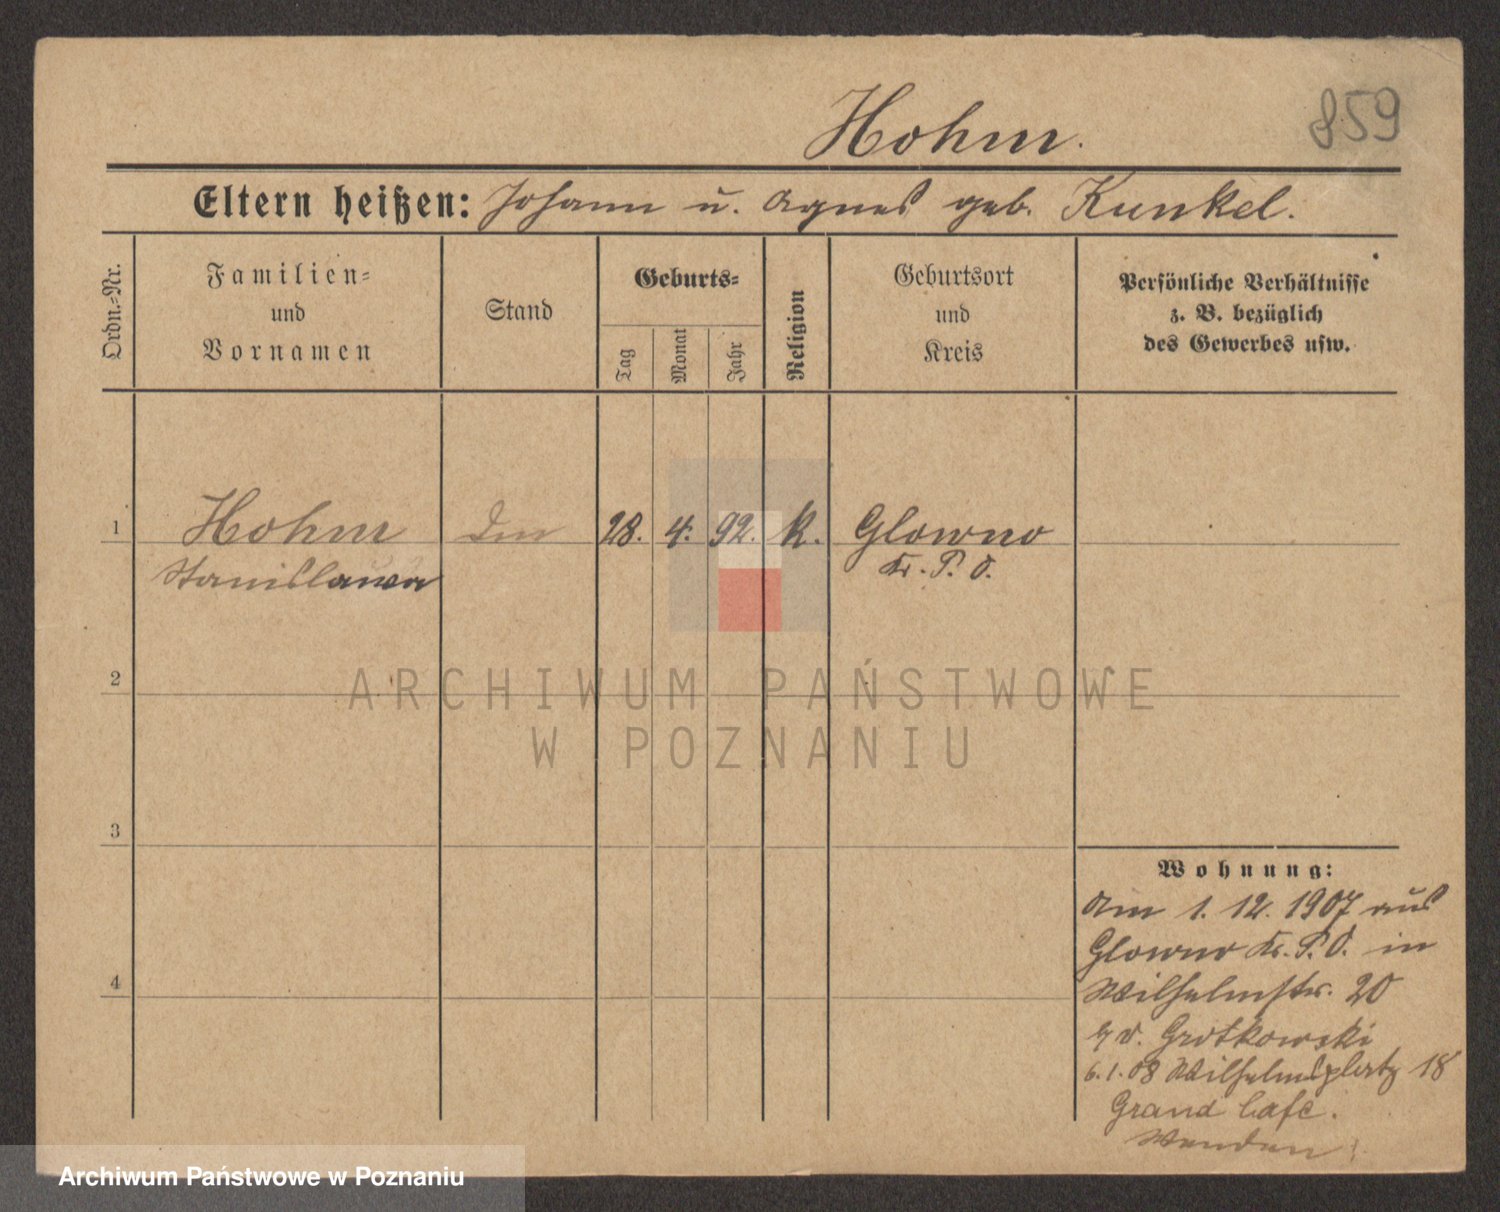 Hohm.
859
Eltern heißen: Johann u. Agnes geb. Kunkel.
Ordn.-Nr.
Familien-
und
Vornamen
Stand
Geburts-
Tag
Monat
Jahr
Religion
Geburtsort
und
Kreis
Persönliche Verhältnisse
z. B. bezüglich
des Gewerbes usw.
1 Hohm 28. 4. 92. k. Glowno
Stanislawa Kr. P. O.
2
ARCHIWUM PAŃSTWOWE
W POZNANIU
3
Wohnung:
Am 1. 12. 1907 aus
Glowno Kr. P. O. in
Wilhelmstr. 20
4
b/ v. Grotkowski
6.1.08 Wilhelmsplatz 18
Grand Café.
Wenden!
Archiwum Państwowe w Poznaniu